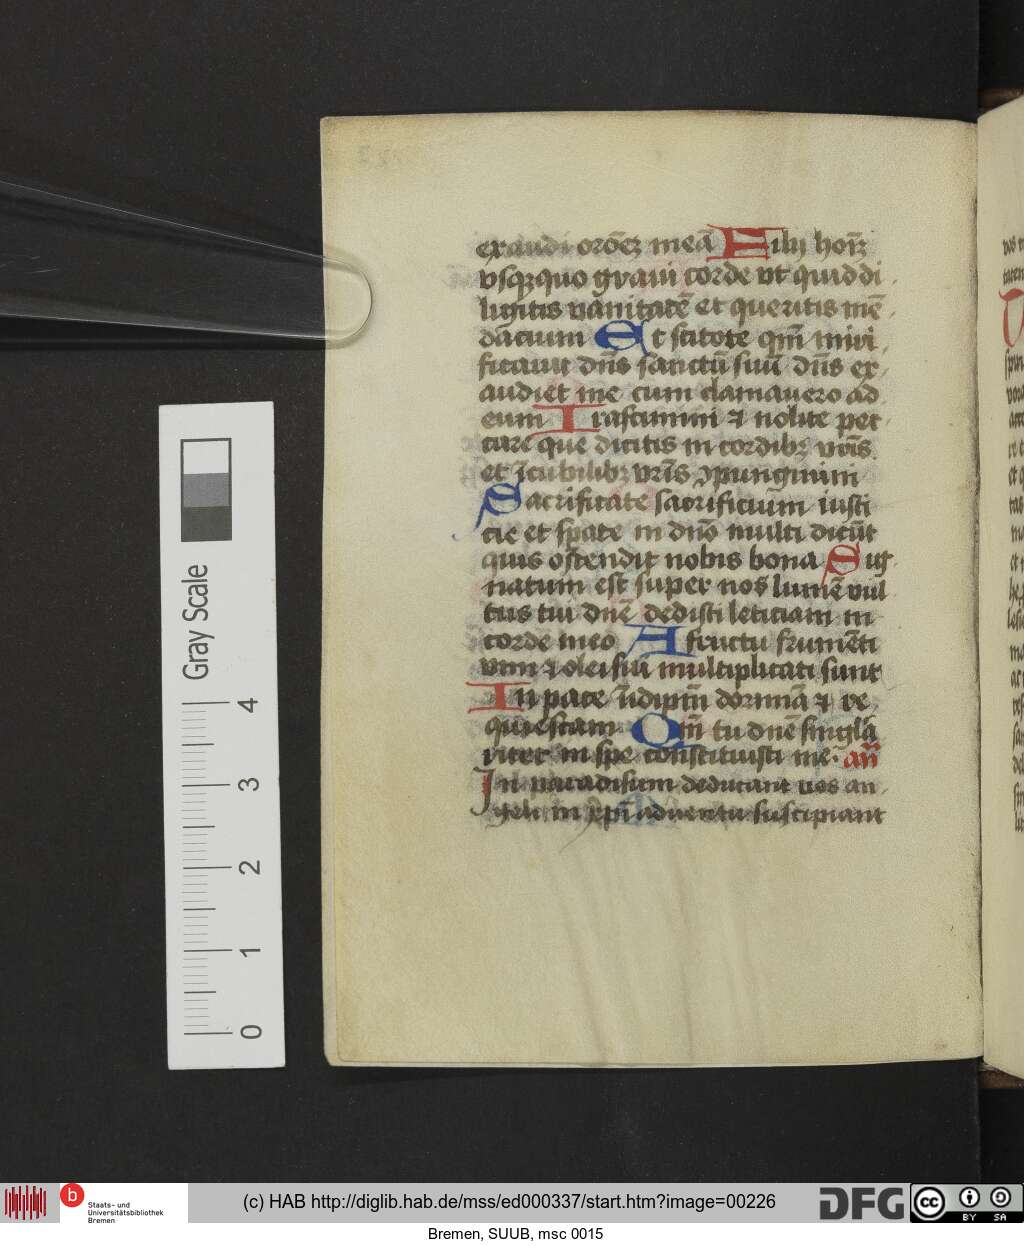 exaudi oroēz meā Filij hoīz
vsqzquo graui corde vt quid di
ligitis vanitatē et queritis mē
dacium Et scitote qm̄ miri
ficauit dn̄s sanctū suū dn̄s ex
audiet me cum clamauero ad
eum Irascimini ⁊ nolite pec
care que dicitis in cordibz vrīs
et ī cubilibz vrīs ꝯpungimini
Sacrificate sacrificium iusti
cie et spate in dn̄o multi dicūt
quis ostendit nobis bona Sig
natum est super nos lumē vul
tus tui dn̄e dedisti leticiam in
corde meo A fructu frumēti
vini ⁊ olei sui multiplicati sunt
In pace īidipm̄ dormiā ⁊ re
quiescam Qm̄ tu dn̄e singlā
riter in spe constituisti me. an̄
In paradisum deducant uos an
geli in xp̄i aduentu suscipiant
Gray Scale
4
3
2
1
0
b Staats- und
Universitätsbibliothek
Bremen
(c) HAB http://diglib.hab.de/mss/ed000337/start.htm?image=00226
DFG
cc BY SA
Bremen, SUUB, msc 0015